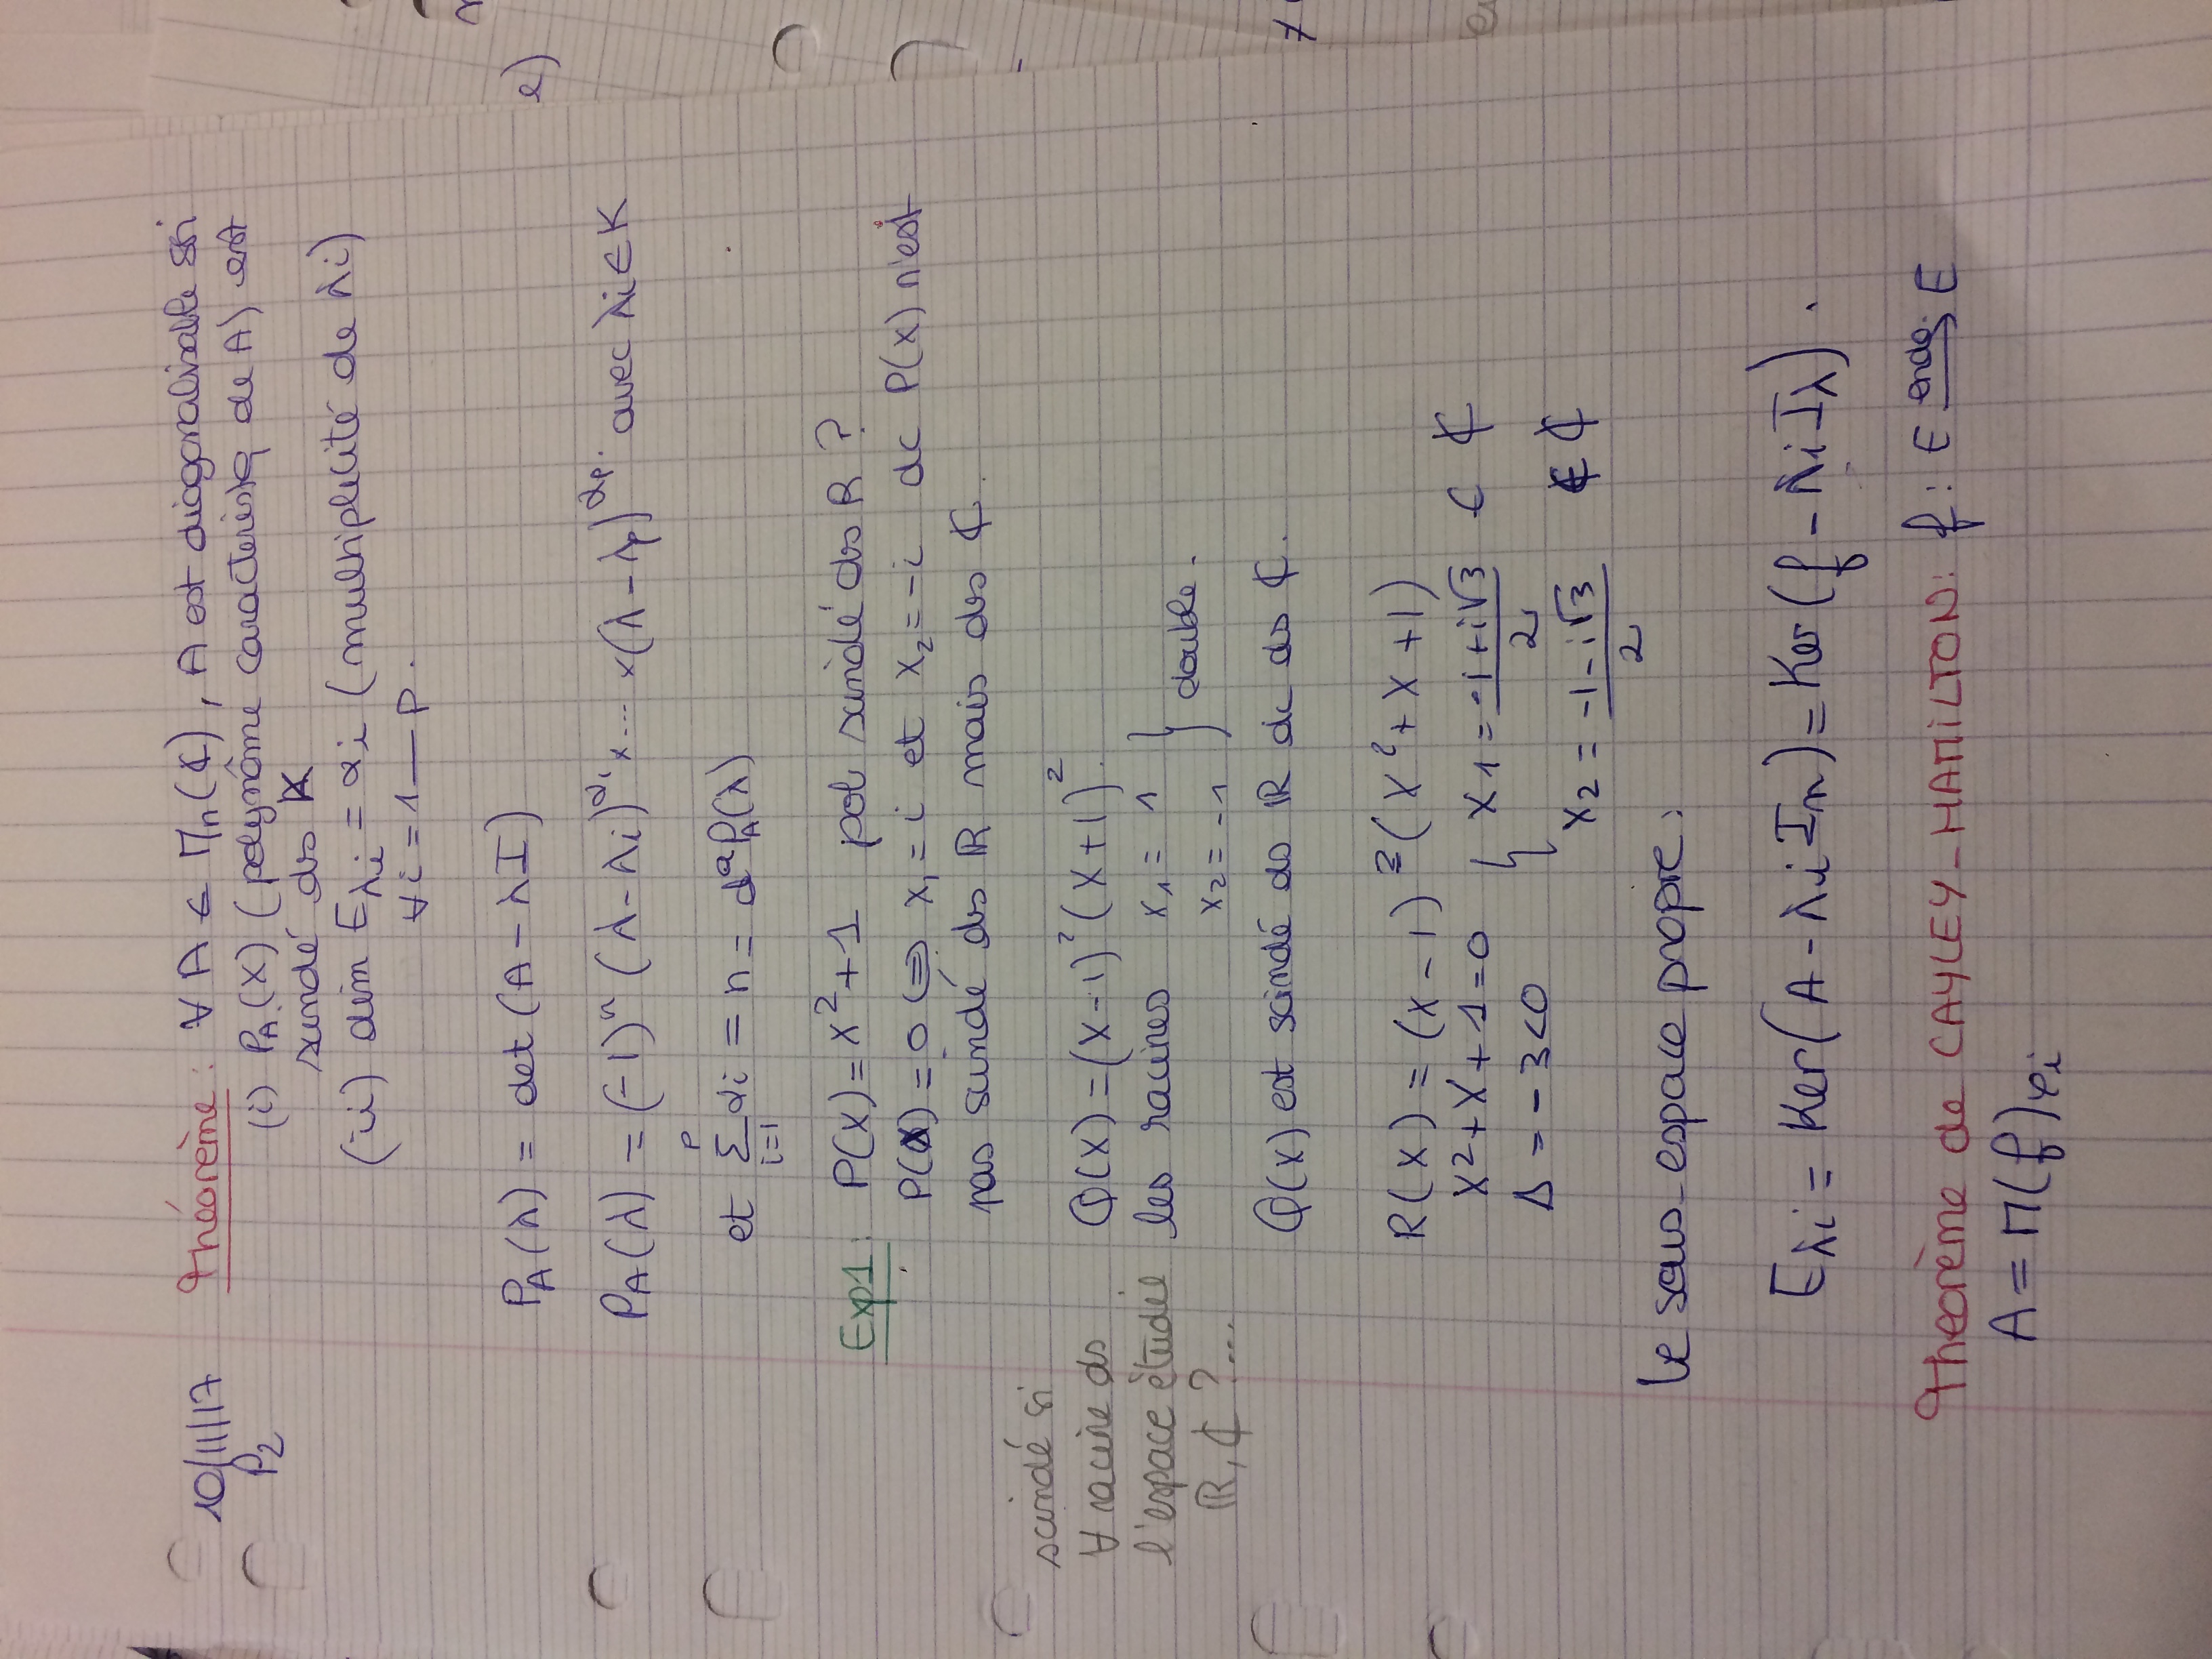 10/11/17
P2
Théorème : ∀ A ∈ Mn(ℂ), A est diagonalisable ssi
(i) PA(X) (polynôme caractéristq de A) est
scindé ds K
(ii) dim Eλi = αi (multiplicité de λi)
∀i = 1 — p.
PA(λ) = det (A - λI)
PA(λ) = (-1)^n (λ - λi)^αi × ... × (λ - λp)^αp. avec λi ∈ K
et Σ_{i=1}^{p} αi = n = d° PA(λ)
Exp1 : P(X) = X² + 1 pol scindé ds R ?
P(X) = 0 ⇔ x1 = i et x2 = -i dc P(X) n'est
pas scindé ds ℝ mais ds ℂ.
scindé si
∀ racine ds
l'espace étudié
ℝ, ℂ ?...
Q(X) = (X-1)² (X+1)².
les racines x1 = 1
x2 = -1 } double.
Q(X) est scindé ds ℝ dc ds ℂ.
R(X) = (X-1)² (X² + X + 1)
X² + X + 1 = 0 { X1 = (-1+i√3)/2 ∈ ℂ
Δ = -3 < 0
X2 = (-1-i√3)/2 ∈ ℂ
le sous-espace propre :
Eλi = Ker(A - λi In) = Ker(f - λi Iλ).
Theorème de CAYLEY-HAMILTON : f : E endo.→ E
A = M(f)